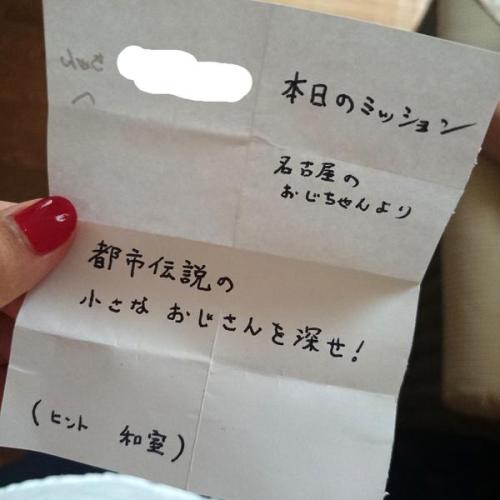 ちゃん
へ
本日のミッション
名古屋の
おじちゃんより
都市伝説の
小さな おじさんを深せ!
(ヒント 和室)